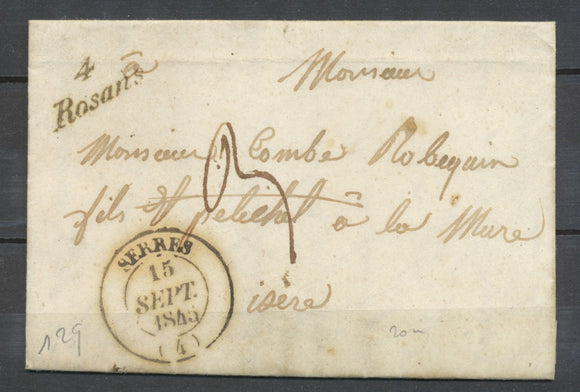 4
Rosans
à
Monsieur
Monsieur Combe Robequin
fils et à la Mure
isère
SERRES
15
SEPT.
1845
(4)
129